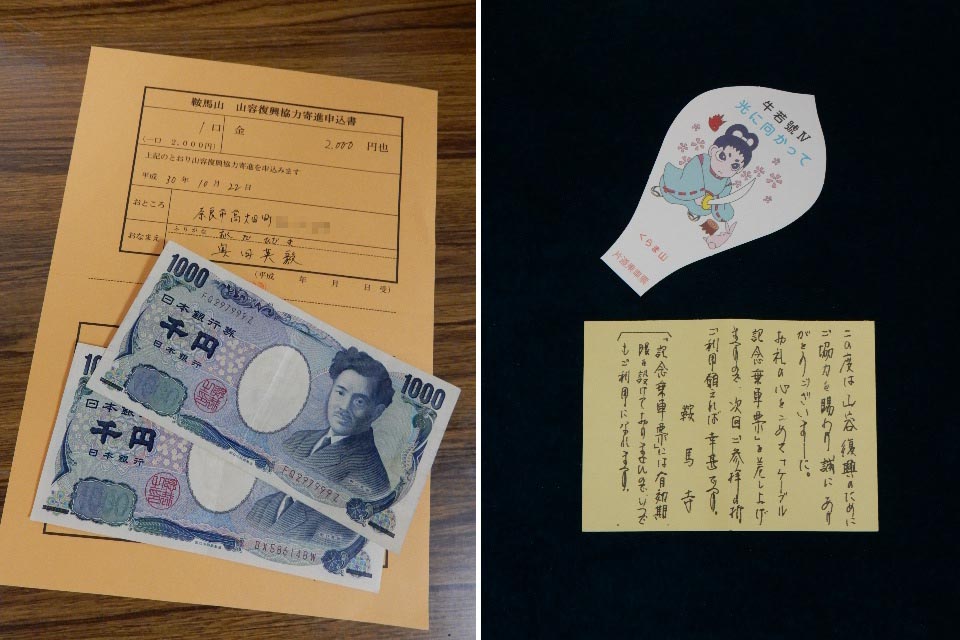 鞍馬山 山容復興協力寄進申込書
1口 金 2,000 円也
(一口 2,000円)
上記のとおり山容復興協力寄進を申込みます
平成 30 年 10 月 22 日
おところ
奈良市高畑町
ふりがな
おなまえ
(平成 年 月 日 受)
1000
FQ297999Z
日本銀行券
千円
日本銀行
1000
FQ297999Z
日本銀行券
千円
日本銀行
BX586148W
牛若號Ⅳ
光に向かって
くらま山
片道乗車票
この度は山容復興のために
ご協力を賜わり誠にあり
がとうございました。
お礼の心をこめて「ケーブル
記念乗車票」を差し上げ
ますので、次回ご参拝の折
ご利用頂ければ幸甚です。
鞍馬寺
「記念乗車票」には有効期
限を設けておりませんのでいつで
もご利用になれます。